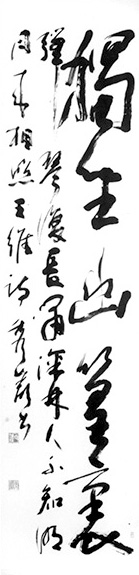 獨坐幽篁裏
彈琴復長嘯深林人不知明
月來相照王維詩